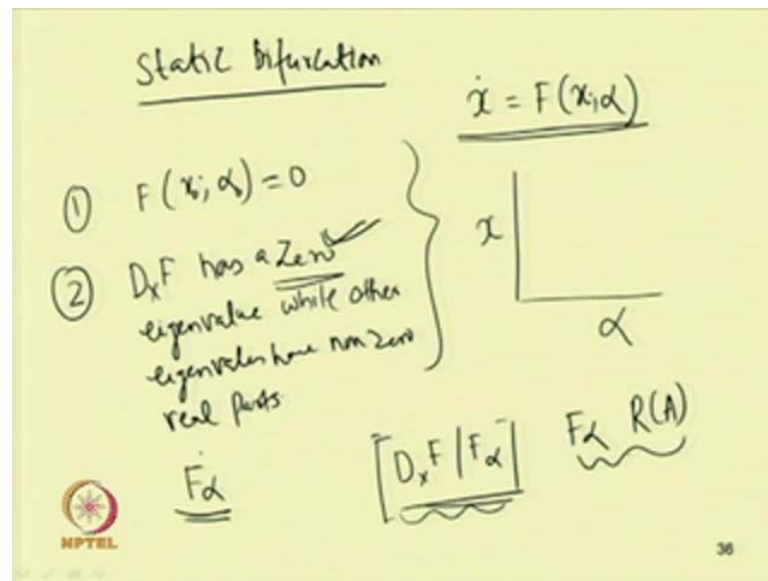 Static Bifurcation
ẋ = F(x; α)
① F(x₀; α₀) = 0
② DₓF has a Zero
eigenvalue while other
eigenvalues have non zero
real parts.
x
α
Fα
[DₓF | Fα]
Fα R(A)
NPTEL
36